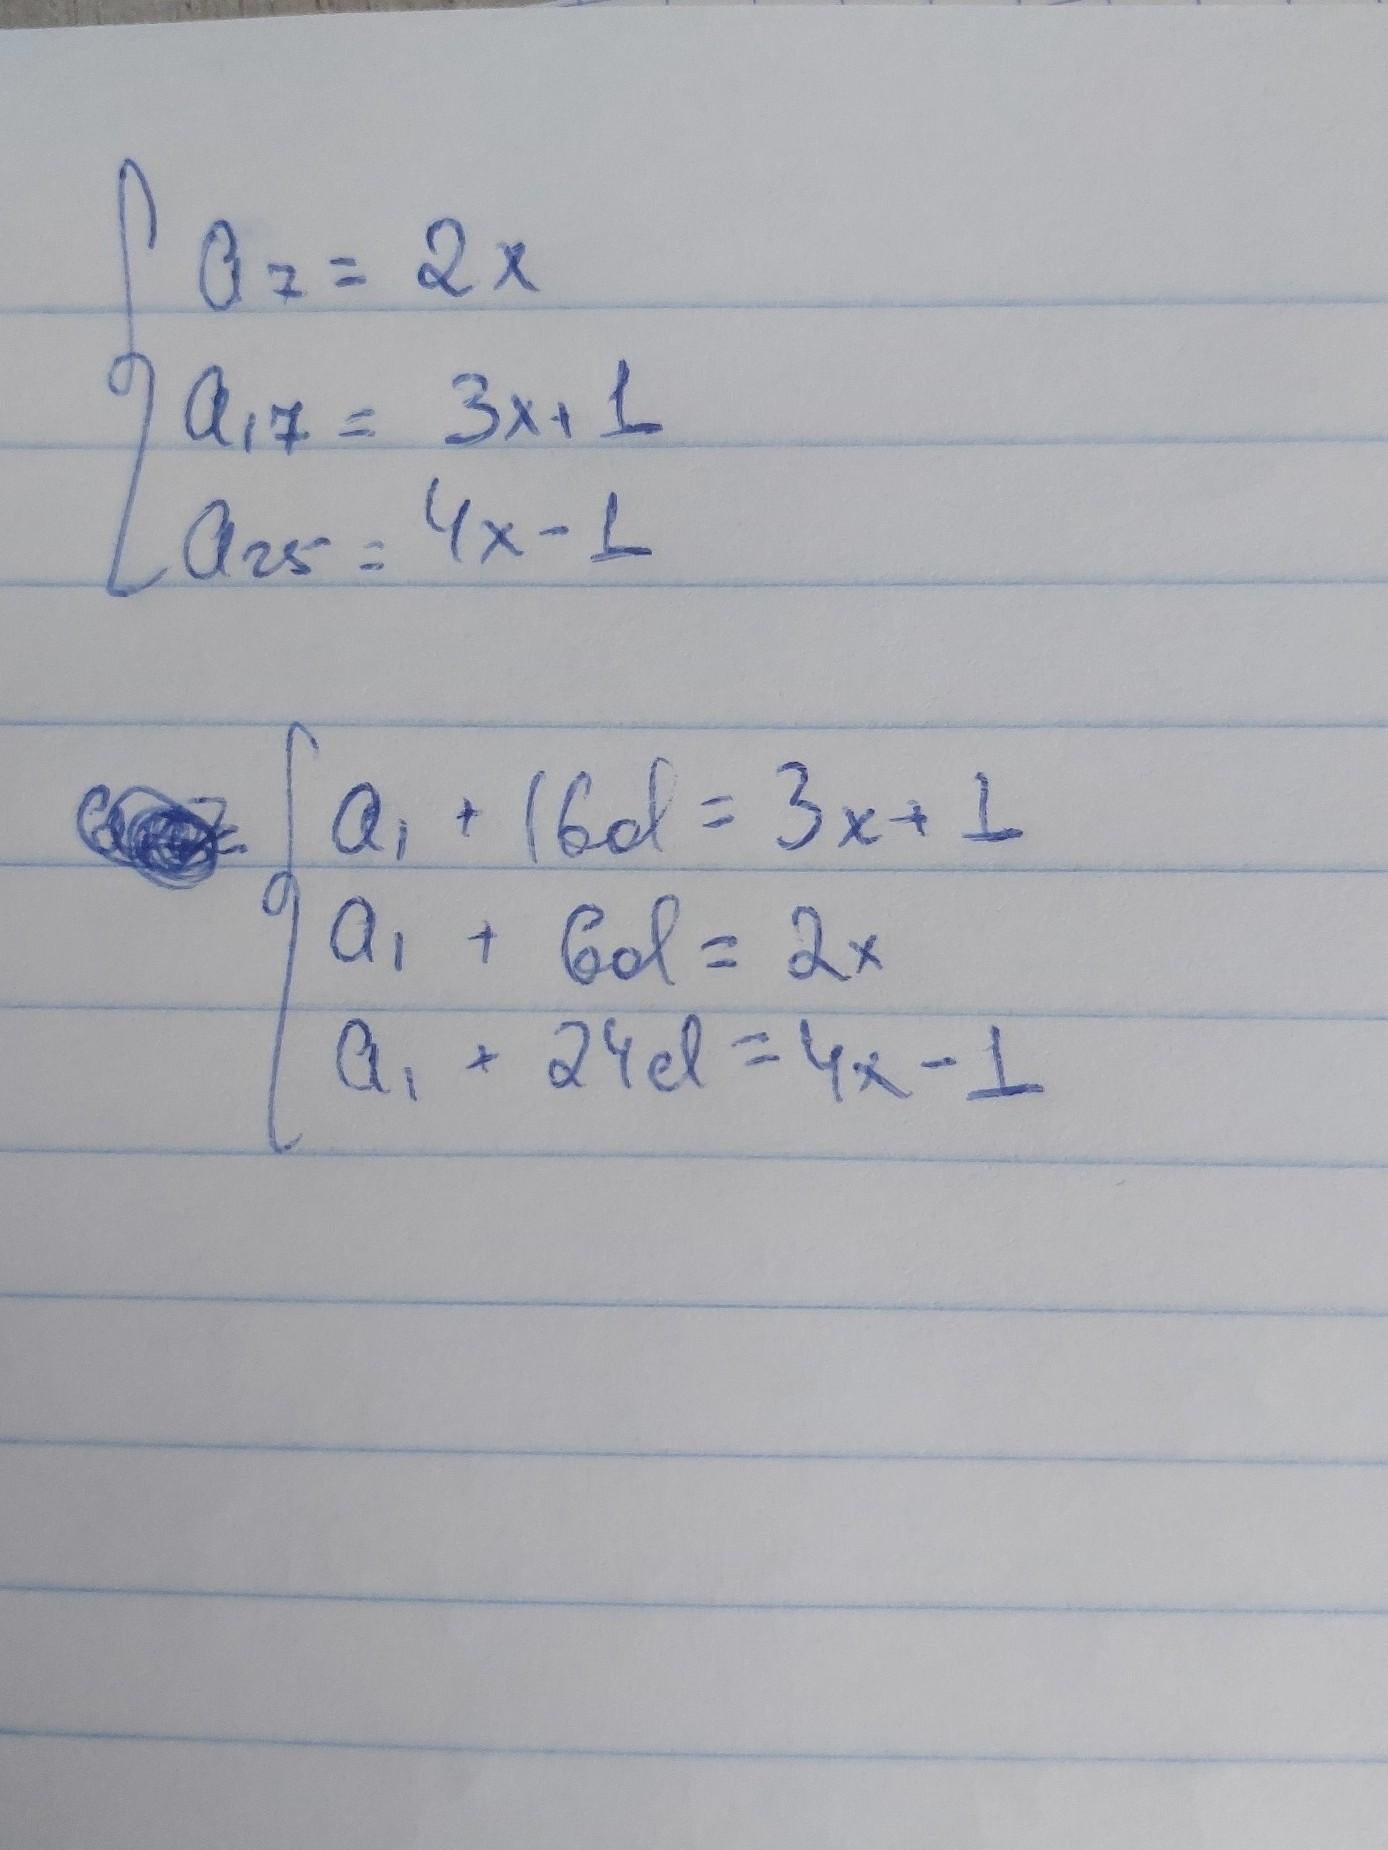 a₇ = 2x
a₁₇ = 3x+1
a₂₅ = 4x-1
a₁ + 16d = 3x+1
a₁ + 6d = 2x
a₁ + 24d = 4x-1